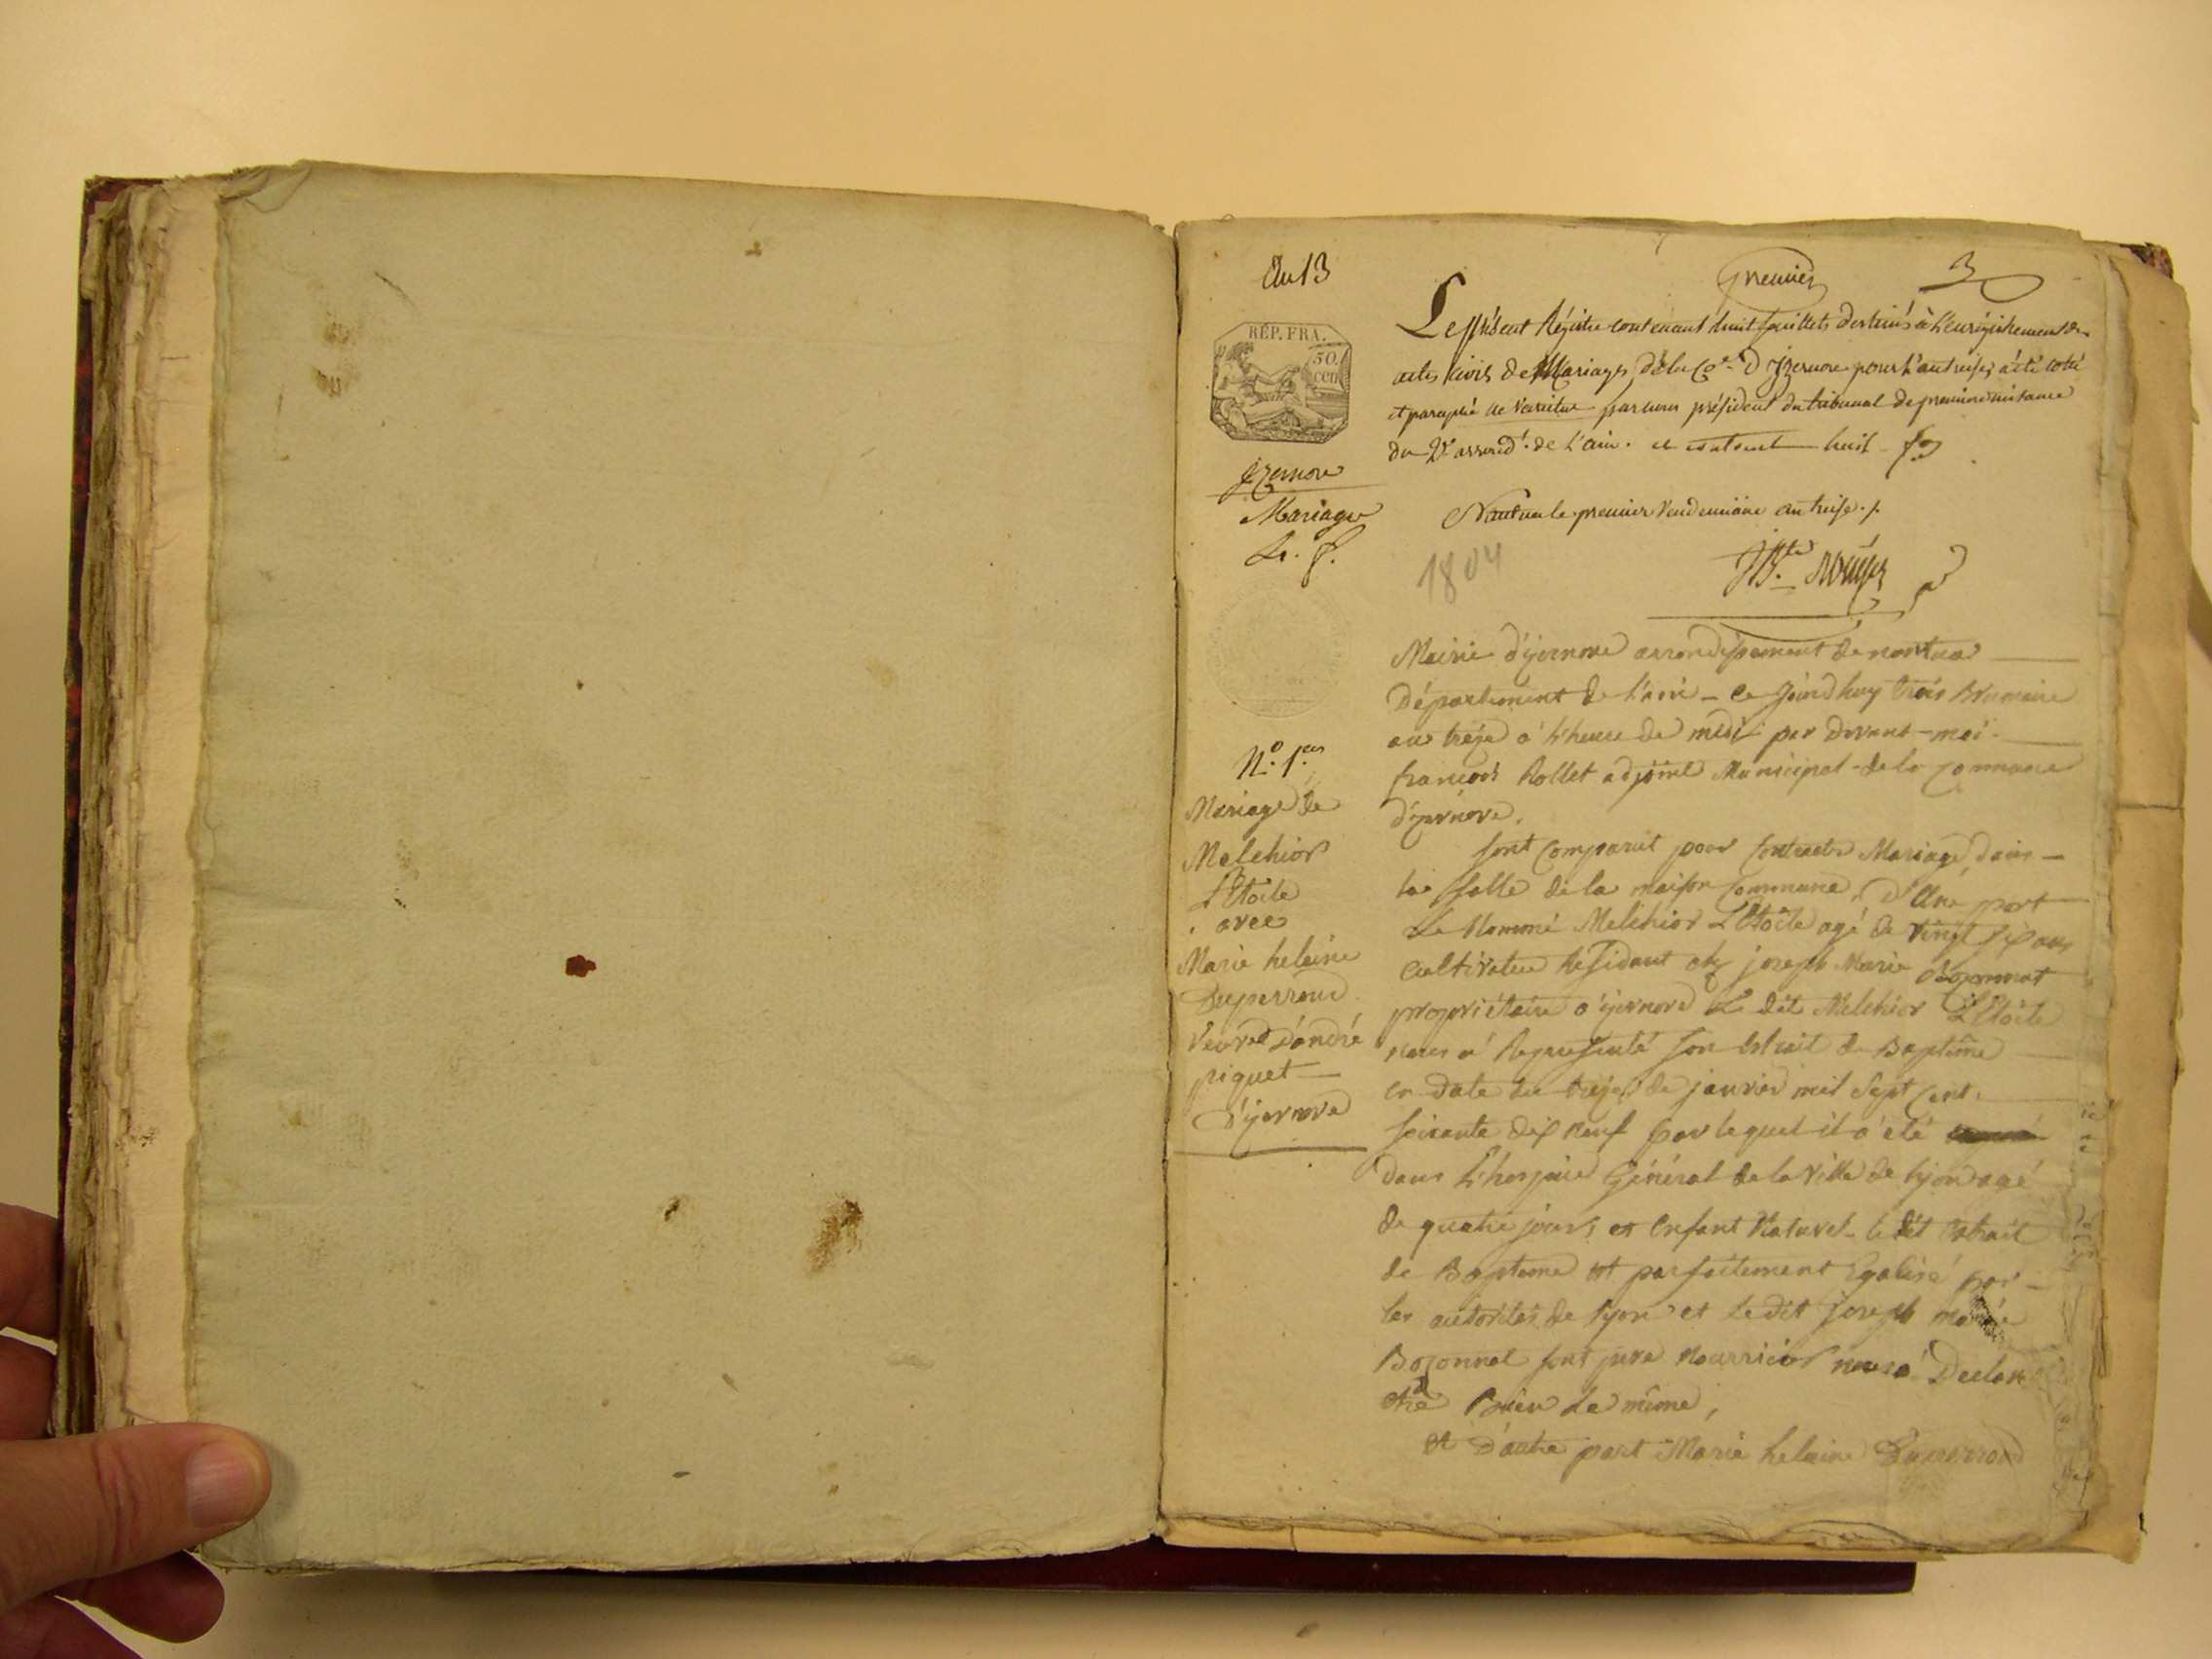 An 13
premier
3
RÉP. FRA.
50
cen
Izernore
Mariages
Le présent Régistre contenant huit feuillets destinés à l'enrégistrement des
actes civils de Mariages de la Cne D'Izernore pour l'an treize, a été cotté
et paraphé ne varietur par nous président du tribunal de premiere instance
du 2e arrond.t de L'ain. et contient huit f.
Nantua le premier Vendemiaire an treise ./.
1804
N.o 1.er
Mariage de
Melchior
L'Etoile
avec
Marie heleine
Duperroud
Veuve D'andré
piguet
D'ijernore
Mairie d'ijernore arrondissement de nantua
Département de l'ain - Ce Jourdhuy trois Brumaire
an treize à l'heure de midi par devant-moi
françois Rollet adjoint Municipal de la Commune
d'ijernore.
sont Comparut pour Contracter Mariage dans
la salle de la maison Commune, D'Une part
Le Nommé Melchior L'Etoile agé de vingt six ans
Cultivateur Residant chez joseph Marie Bozonnet
propriétaire a ijernore Le dit Melchior L'Etoile
nous a Representé son Extrait de Baptême
en date du treize de janvier mil Sept Cent
soixante dix neuf par lequel il a été
dans L'hospice Général de la Ville de Lyon agé
de quatre jours, et Enfant Naturel - le dit Extrait
de Baptême est parfaitement Egalisé par
les autorités de Lyon et le dit Joseph marie
Bozonnet sont pere Nourricier nous a Declaré
être Bien Le même,
et D'autre part Marie helaine Duperroud